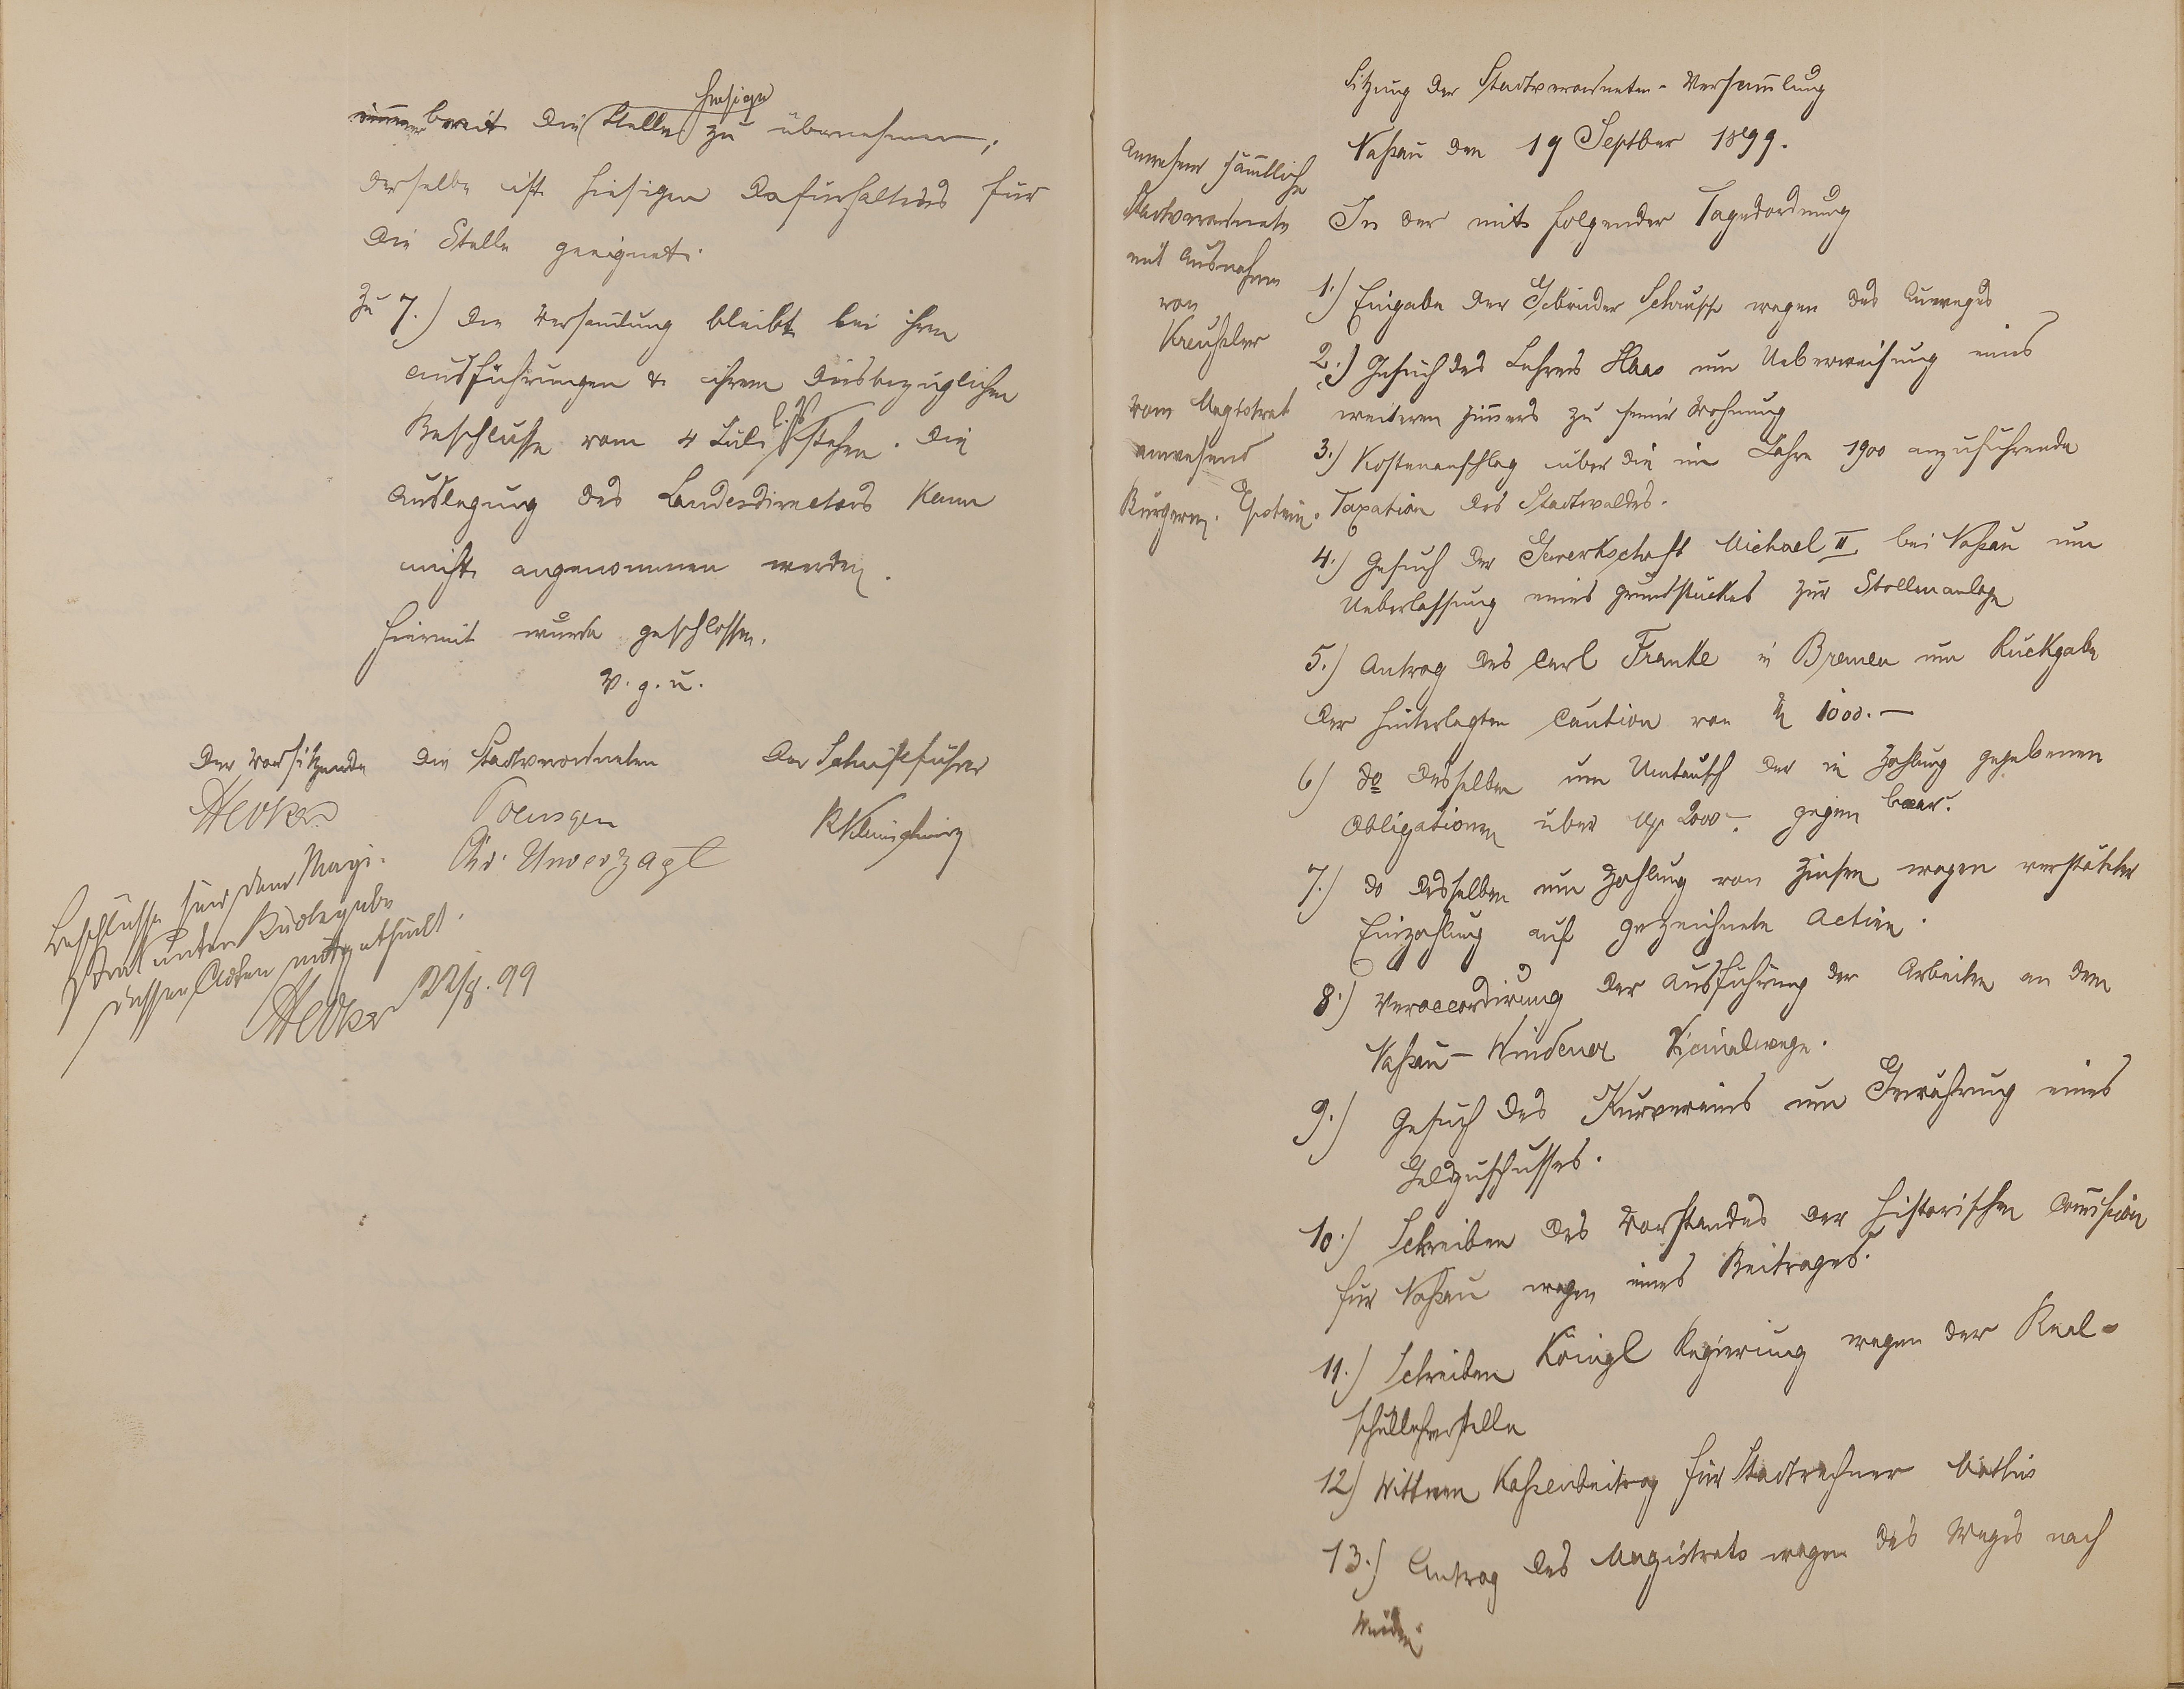 bereit die Stelle hiesige zu übernehmen,
derselbe ist hiesigen Dafürhaltens für
die Stelle geeignet.
Zu 7.) Die Versam̄lung bleibt bei ihren
Ausführungen & ihrem diesbezüglichen
Beschlusse vom 4 Juli l. Js stehen. Die
Auslegung des Landesdirectors kann
nicht angenommen werden.
Hiermit wurde geschlossen.
V. g. u.
Der Vorsitzende Die Stadtverordneten Der Schriftführer
Poensgen
Chr. Unverzagt
Beschlüsse sind dem Magi-
strat unter Rückgabe
dessen Acten mitgetheilt.
22/9. 99
Sitzung der Stadtverordneten-Versam̄lung
Nassau den 19 Septber 1899.
Anwesend säm̄tliche
Stadtverordnete
mit Ausnahme
von
Kreuseler
Vom Magistrat
anwesend
Bürgerm.
In der mit folgender Tagesordnung
1.) Eingabe der Gebrüder wegen des Auweges
2.) Gesuch des Lehrers Haas um Ueberweisung eines
weiteren Zim̄ers zu seiner Wohnung
3.) Kostenanschlag über die im Jahre 1900 auszuführende
Taxation des Stadtwaldes.
4.) Gesuch der Gewerkschaft Michael II bei Nassau um
Ueberlassung eines Grundstückes zur Stollenanlage
5.) Antrag des Carl Franke in Bremen um Rückgabe
der hinterlegten Caution von M 1000.—
6) do desselben um Umtausch der in Zahlung gegebenen
Obligationen über M 2000.— gegen baar.
7.) do desselben um Zahlung von Zinsen wegen verspäteter
Einzahlung auf gezeichnete Actien.
8.) Veraccordirung der Ausführung der Arbeiten an dem
Nassau—Windener Vicinalwege.
9.) Gesuch des Kurvereins um Gewährung eines
Geldzuschusses.
10.) Schreiben des Vorstandes der historischen Com̄ission
für Nassau wegen eines Beitrages.
11.) Schreiben Königl Regierung wegen der Real-
schullehrerstelle
12.) Wittwen Kassenbeitrag für Stadtrechner
13.) Antrag des Magistrats wegen des Weges nach